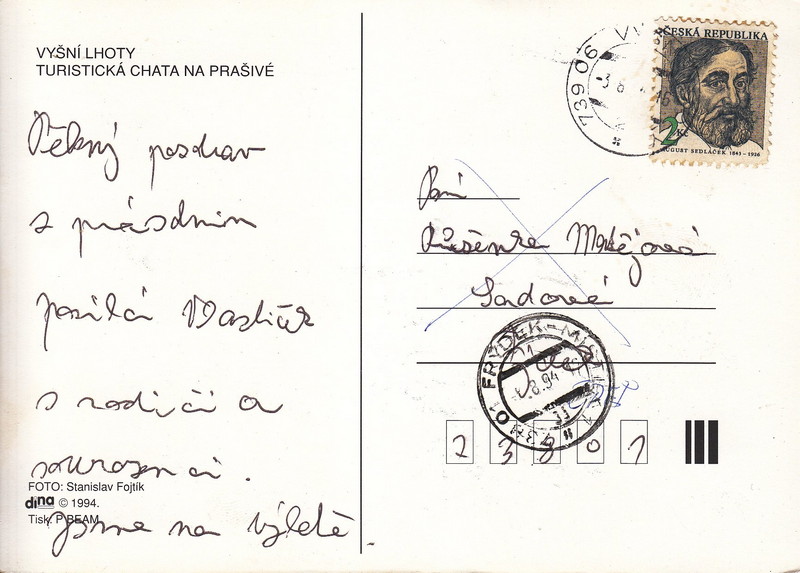 VYŠNÍ LHOTY
TURISTICKÁ CHATA NA PRAŠIVÉ
Pěkný pozdrav
z prázdnin
posílá Vlastíček
s rodiči a
sourozenci.
Jsme na výletě
FOTO: Stanislav Fojtík
dina © 1994.
Tisk: P BEAM
ČESKÁ REPUBLIKA
2 Kč
AUGUST SEDLÁČEK 1843–1926
739 06
Paní
Růženka Matějová
Sadová
FRÝDEK-MÍSTEK
8.94
738 01
2 3 8 0 1